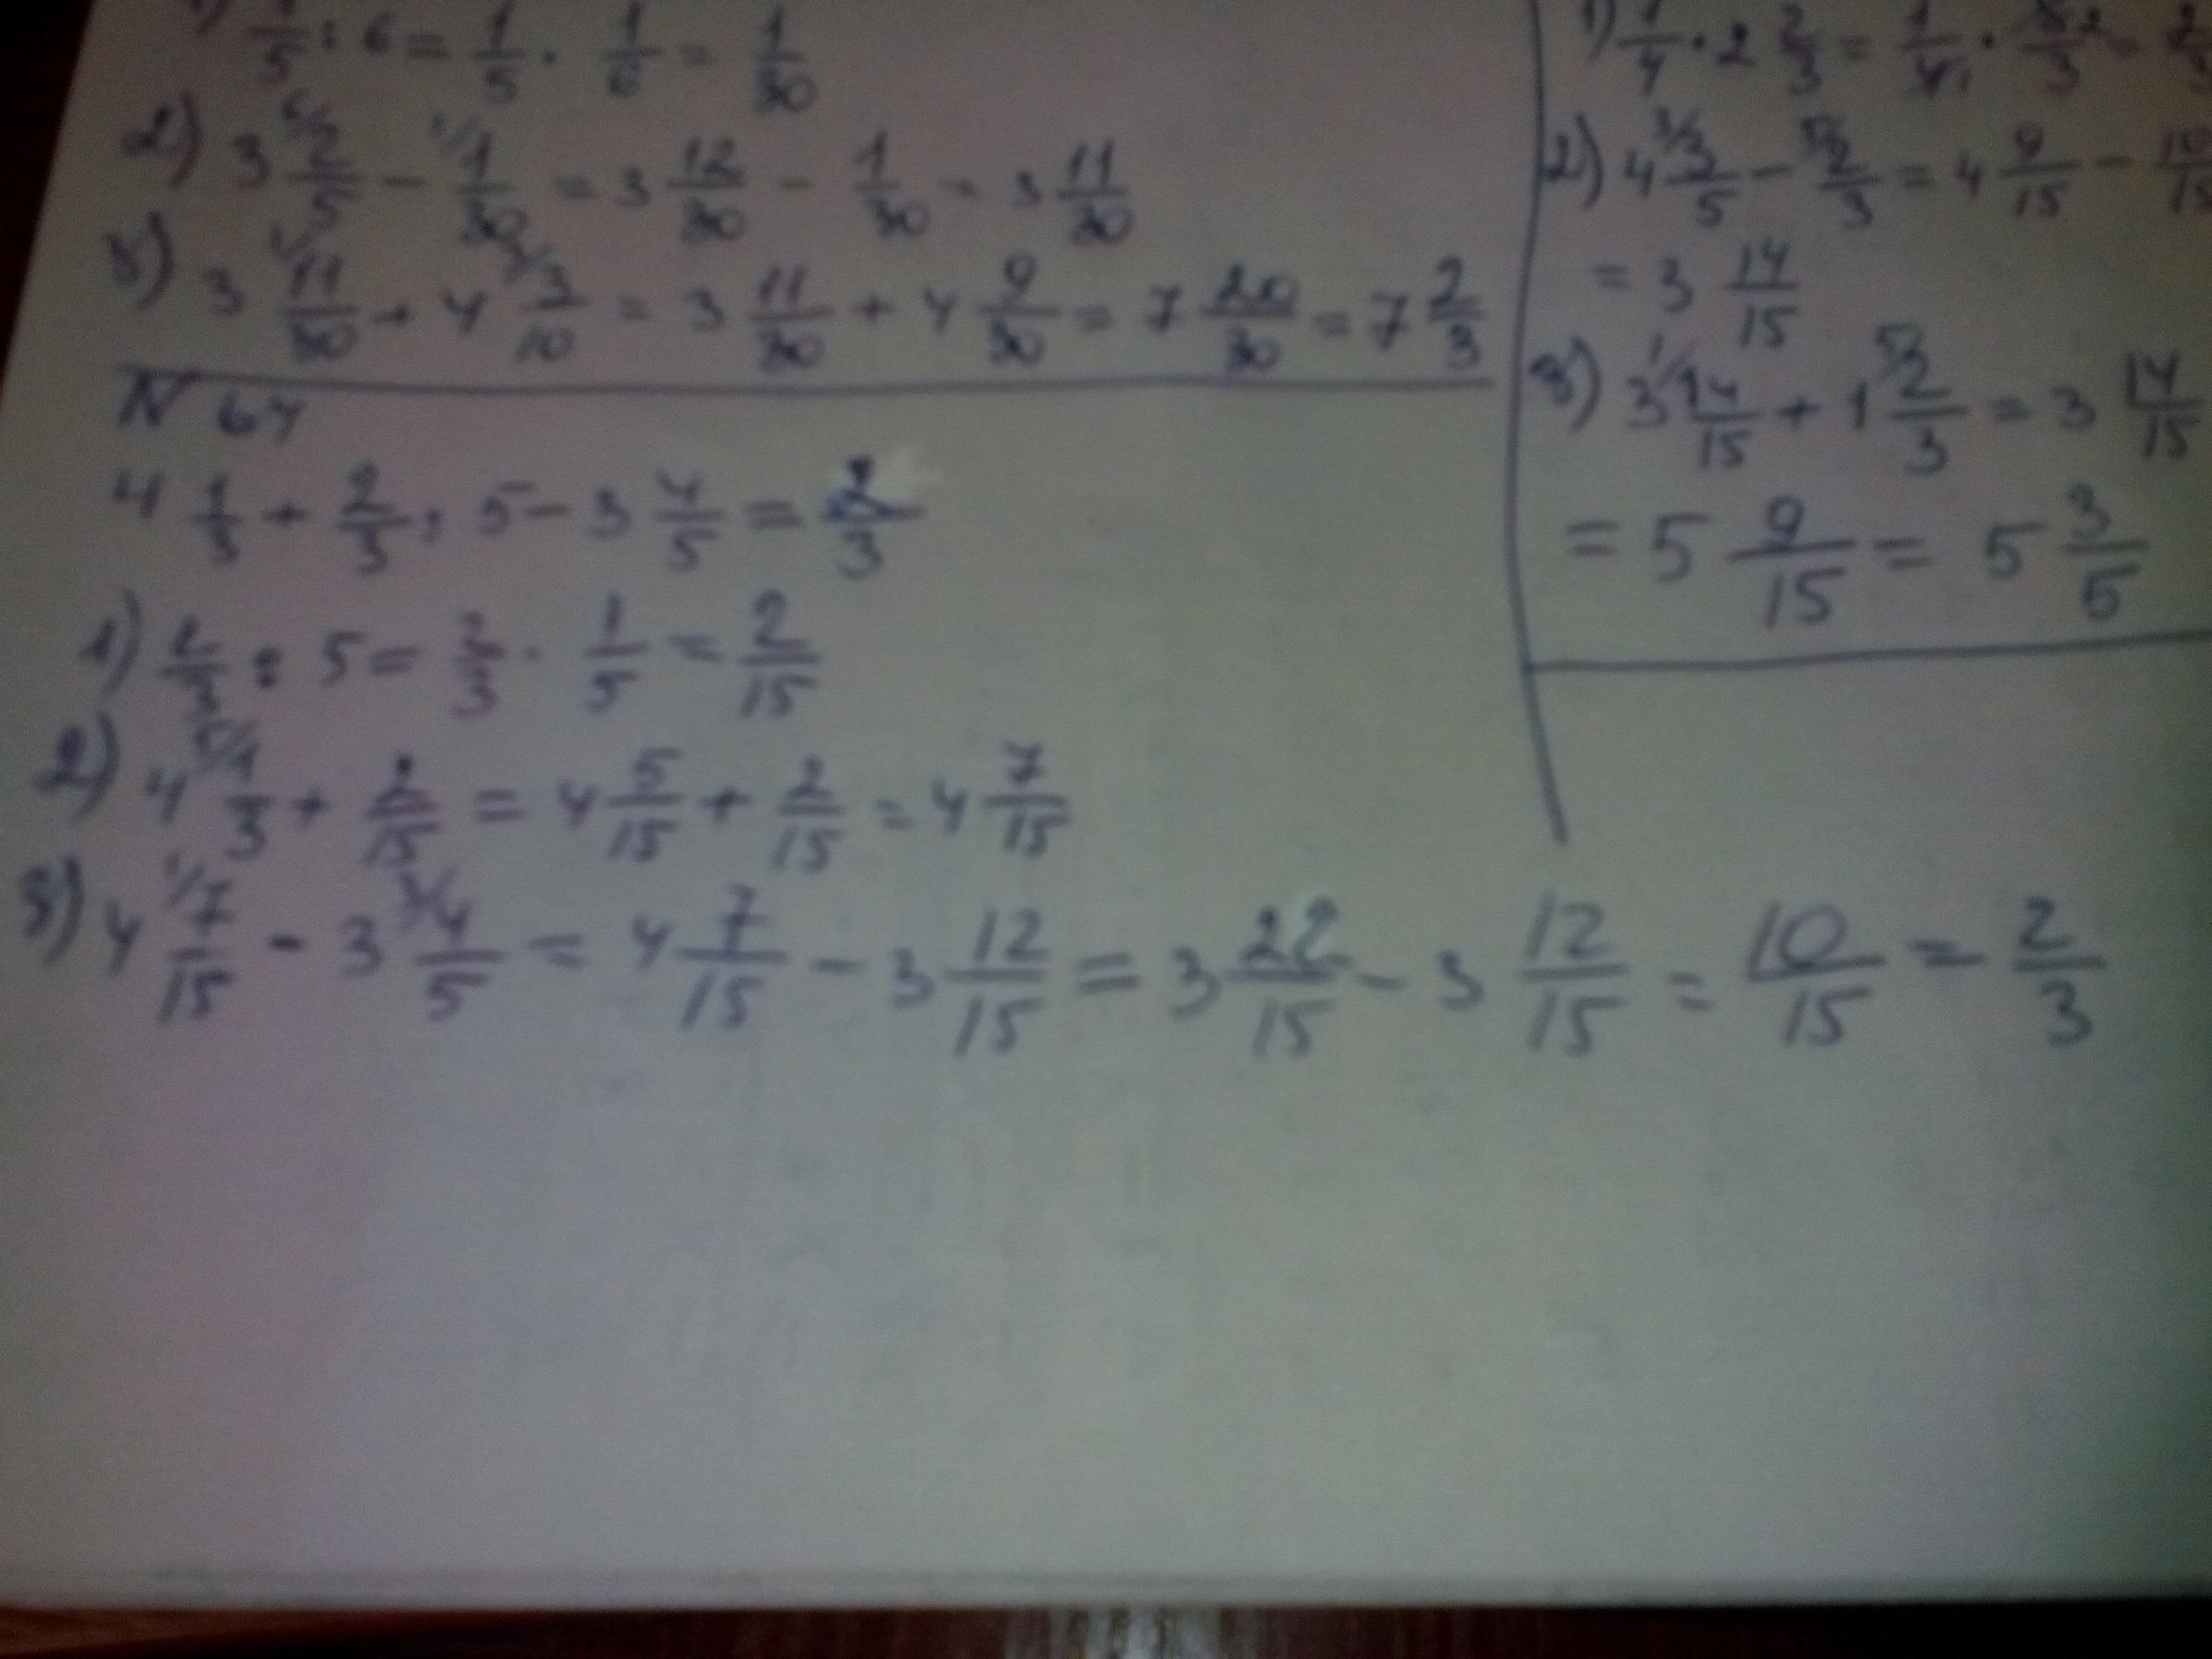 1) 1/5 : 6 = 1/5 · 1/6 = 1/30
2) 3 6/2/5 - 1/1/30 = 3 12/30 - 1/30 = 3 11/30
3) 3 1/11/30 + 4 3/3/10 = 3 11/30 + 4 9/30 = 7 20/30 = 7 2/3
N 64
4 1/3 + 2/3 : 5 - 3 4/5 = 2/3
1) 2/3 : 5 = 2/3 · 1/5 = 2/15
2) 4 5/1/3 + 2/15 = 4 5/15 + 2/15 = 4 7/15
3) 4 1/7/15 - 3 3/4/5 = 4 7/15 - 3 12/15 = 3 22/15 - 3 12/15 = 10/15 = 2/3
1) 1/4 · 2 2/3 = 1/4 1 · 8 2/3 = 2/3
2) 4 3/3/5 - 5/2/3 = 4 9/15 - 10/15
= 3 14/15
3) 3 1/14/15 + 1 5/2/3 = 3 14/15
= 5 9/15 = 5 3/5